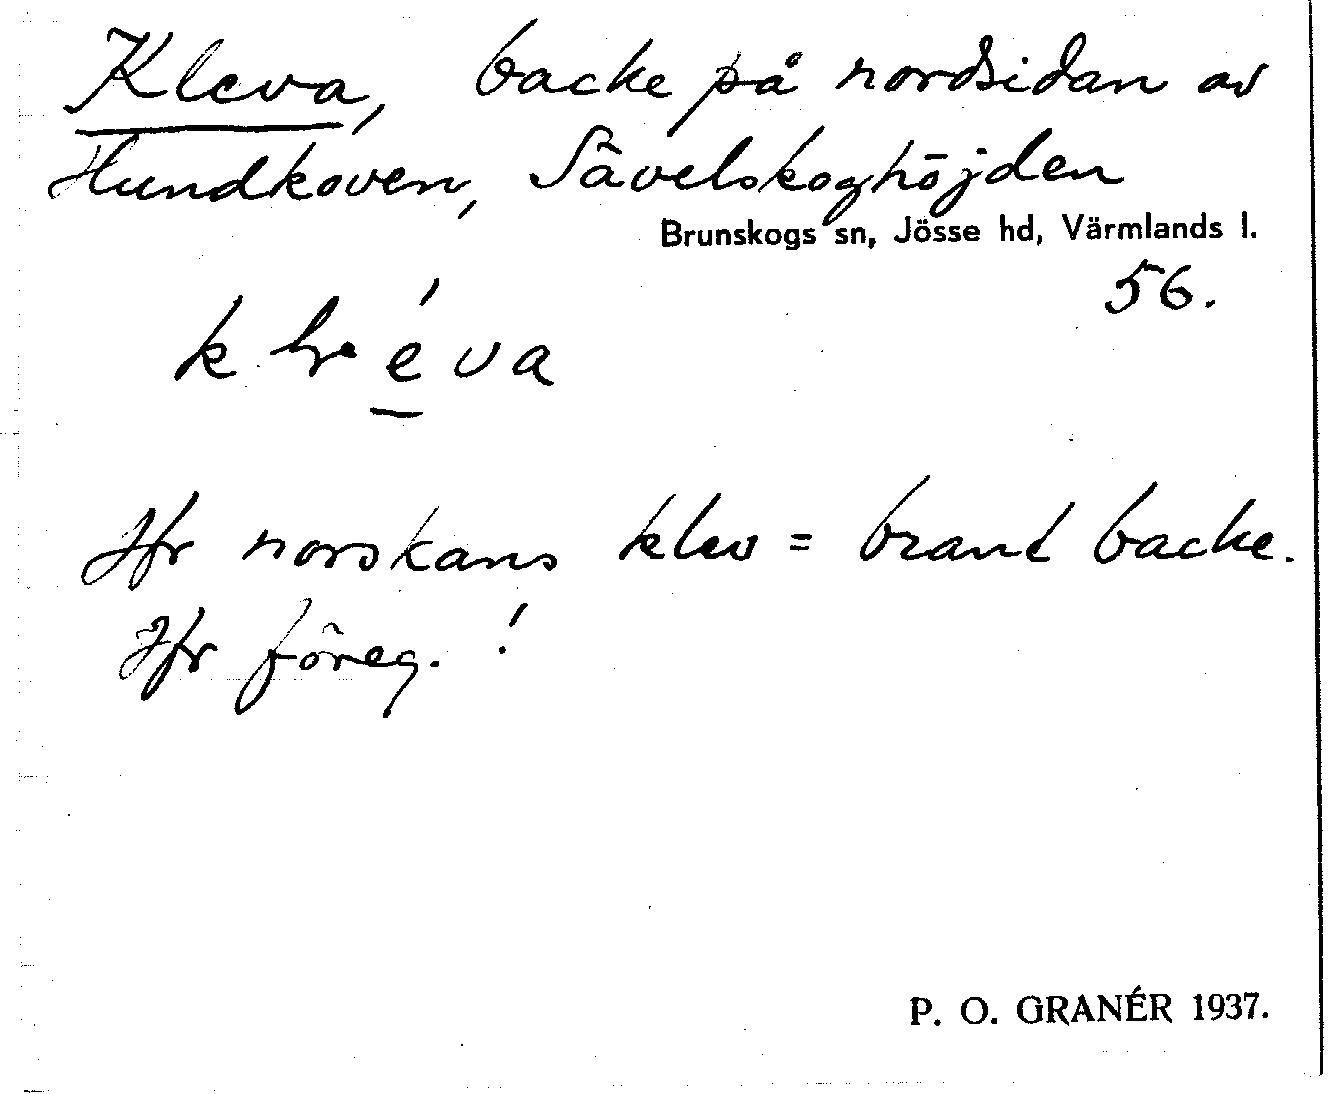 Kleva, backe på nordsidan av
Hundkoven, Sävelskoghöjden
Brunskogs sn, Jösse hd, Värmlands l.
56.
Jfr norskans klev = brant backe.
Jfr föreg. !
P. O. GRANÉR 1937.